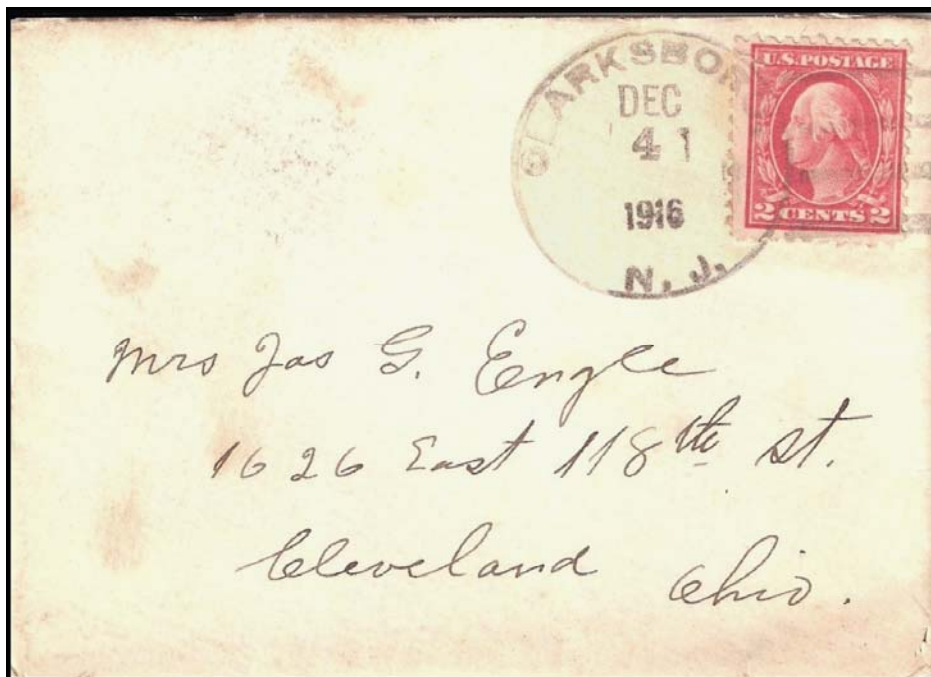 CLARKSBO
DEC
4 1
1916
N. J.
U.S. POSTAGE
2 CENTS 2
Mrs Jas G. Engle
1626 East 118th St.
Cleveland
Ohio.